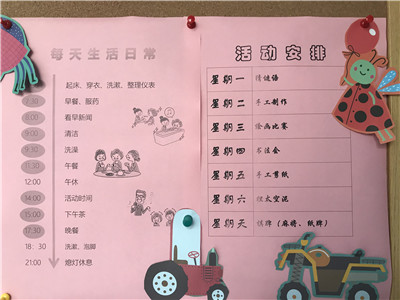 每天生活日常
起床、穿衣、洗漱、整理仪表
7:30 早餐、服药
8:00 看早新闻
9:00 清洁
9:30 洗澡
午餐
12:00 午休
14:00 活动时间
15:00 下午茶
17:30 晚餐
18:30 洗漱、泡脚
21:00 熄灯休息
活动安排
星期一 猜谜语
星期二 手工制作
星期三 绘画比赛
星期四 书法会
星期五 手工剪纸
星期六 但太空泥
星期天 棋牌（麻将、纸牌）